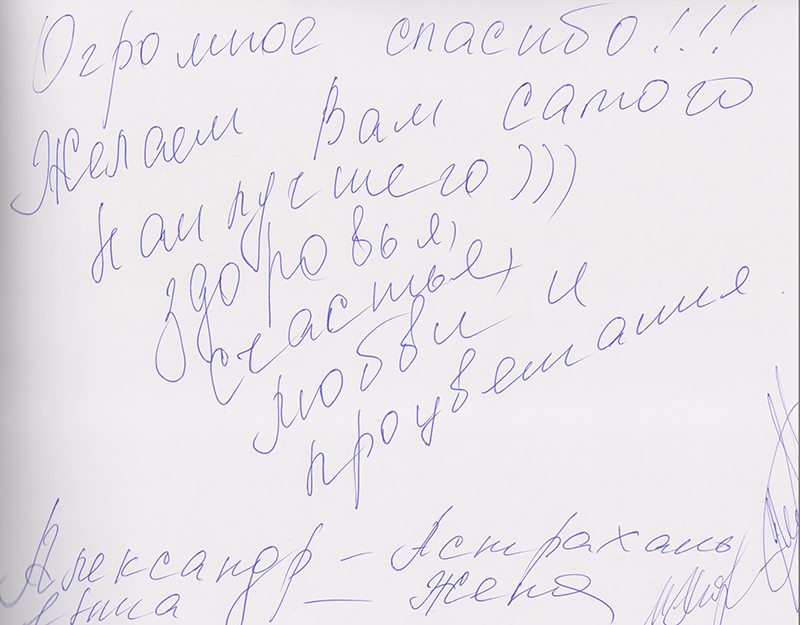 Огромное спасибо!!!
Желаем Вам самого
наилучшего)))
здоровья,
счастья,
любви и
процветания.
Александр - Астрахань
Анна - жена